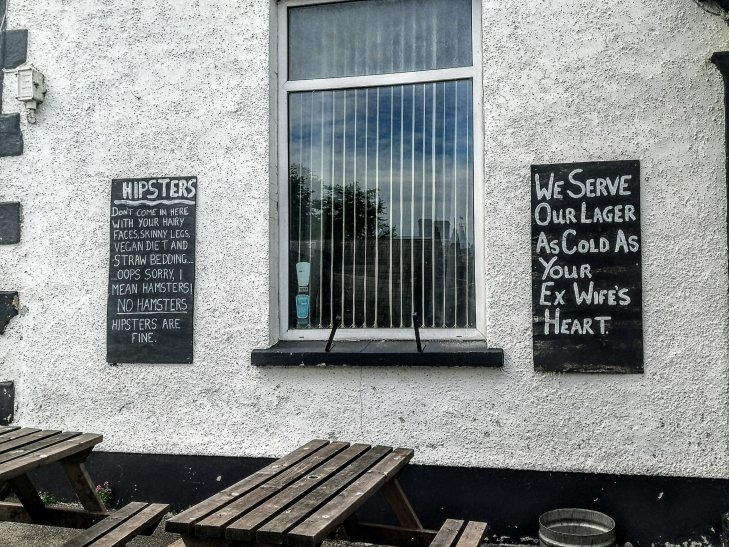 HIPSTERS
DON'T COME IN HERE
WITH YOUR HAIRY
FACES, SKINNY LEGS,
VEGAN DIET AND
STRAW BEDDING...
..OOPS SORRY, I
MEAN HAMSTERS!
NO HAMSTERS
HIPSTERS ARE
FINE.
WE SERVE
OUR LAGER
AS COLD AS
YOUR
EX WIFE'S
HEART.